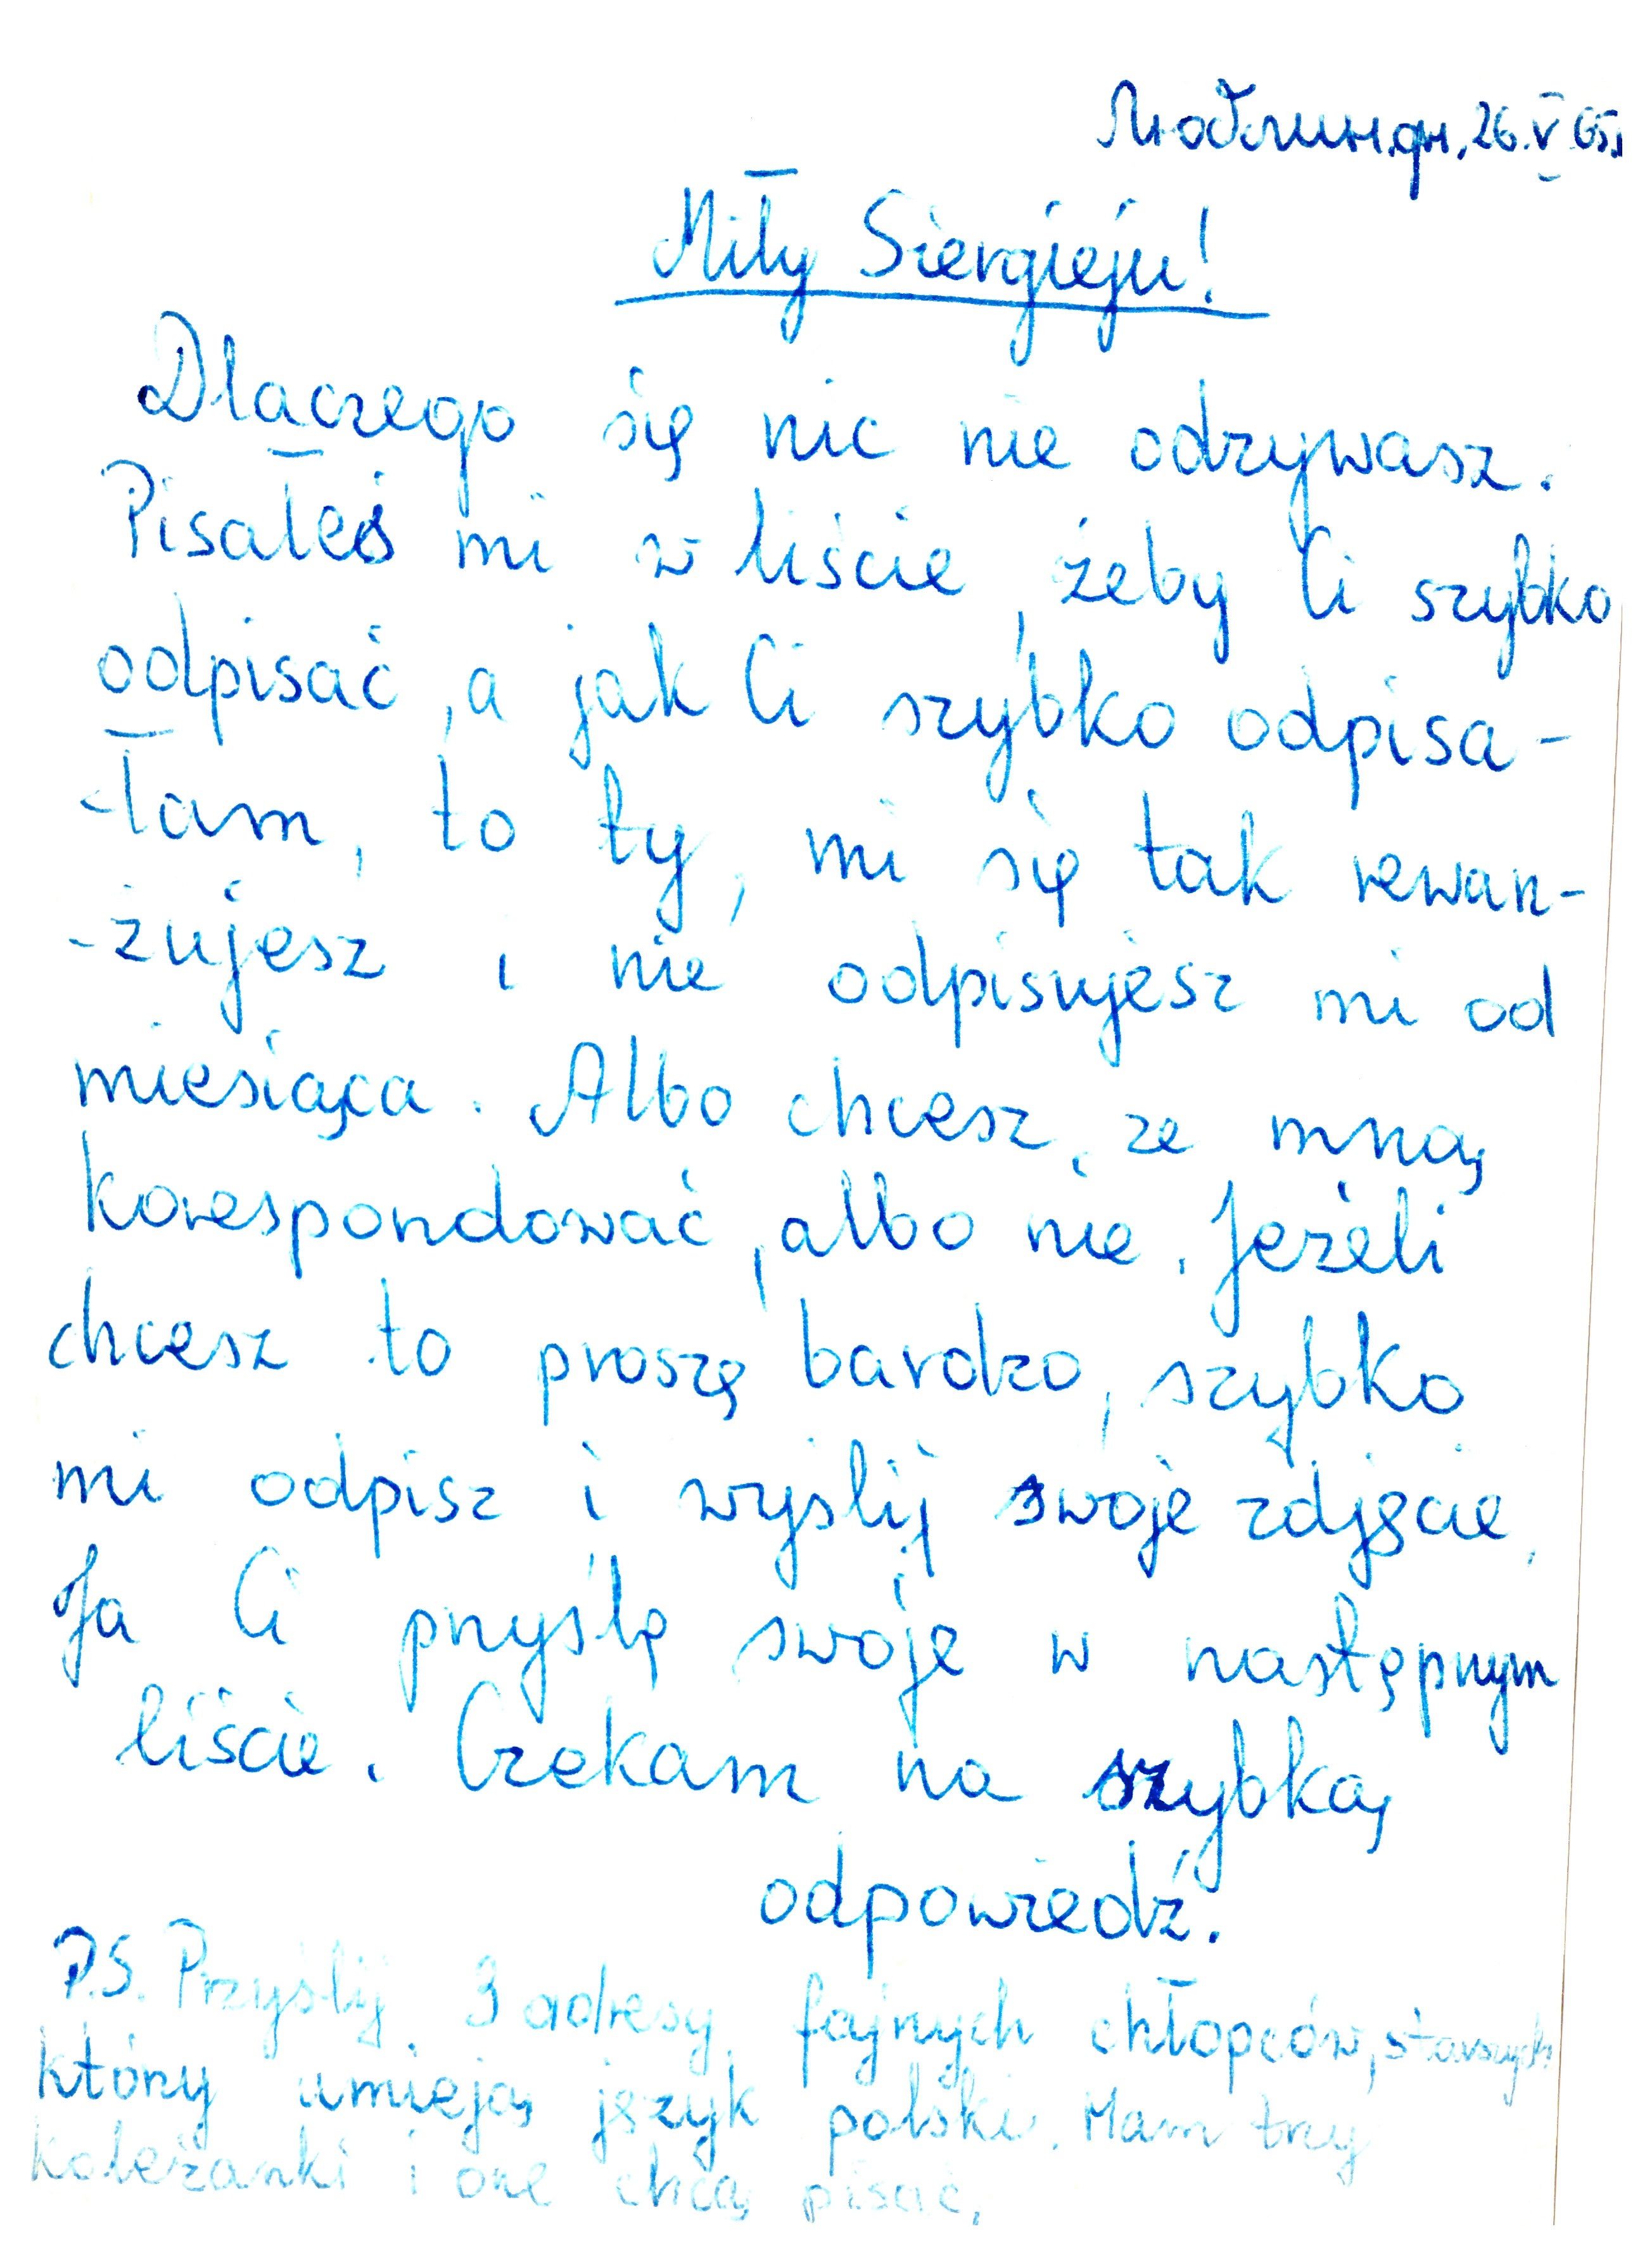 Люблин.дн.26.V.65.
Miły Siergieju!
Dlaczego się nic nie odzywasz.
Pisałeś mi w liście, żeby Ci szybko
odpisać, a jak Ci szybko odpisa-
-łam, to ty, mi się tak rewan-
-żujesz i nie odpisujesz mi od
miesiąca. Albo chcesz, ze mną
korespondować, albo nie. Jeżeli
chcesz to proszę bardzo, szybko
mi odpisz i wyślij swoje zdjęcie.
Ja Ci przyślę swoje w następnym
liście. Czekam na szybką
odpowiedź.
P.S. Przyślij 3 adresy fajnych chłopców, starszych
który umieją język polski. Mam trzy
koleżanki i one chcą pisać.